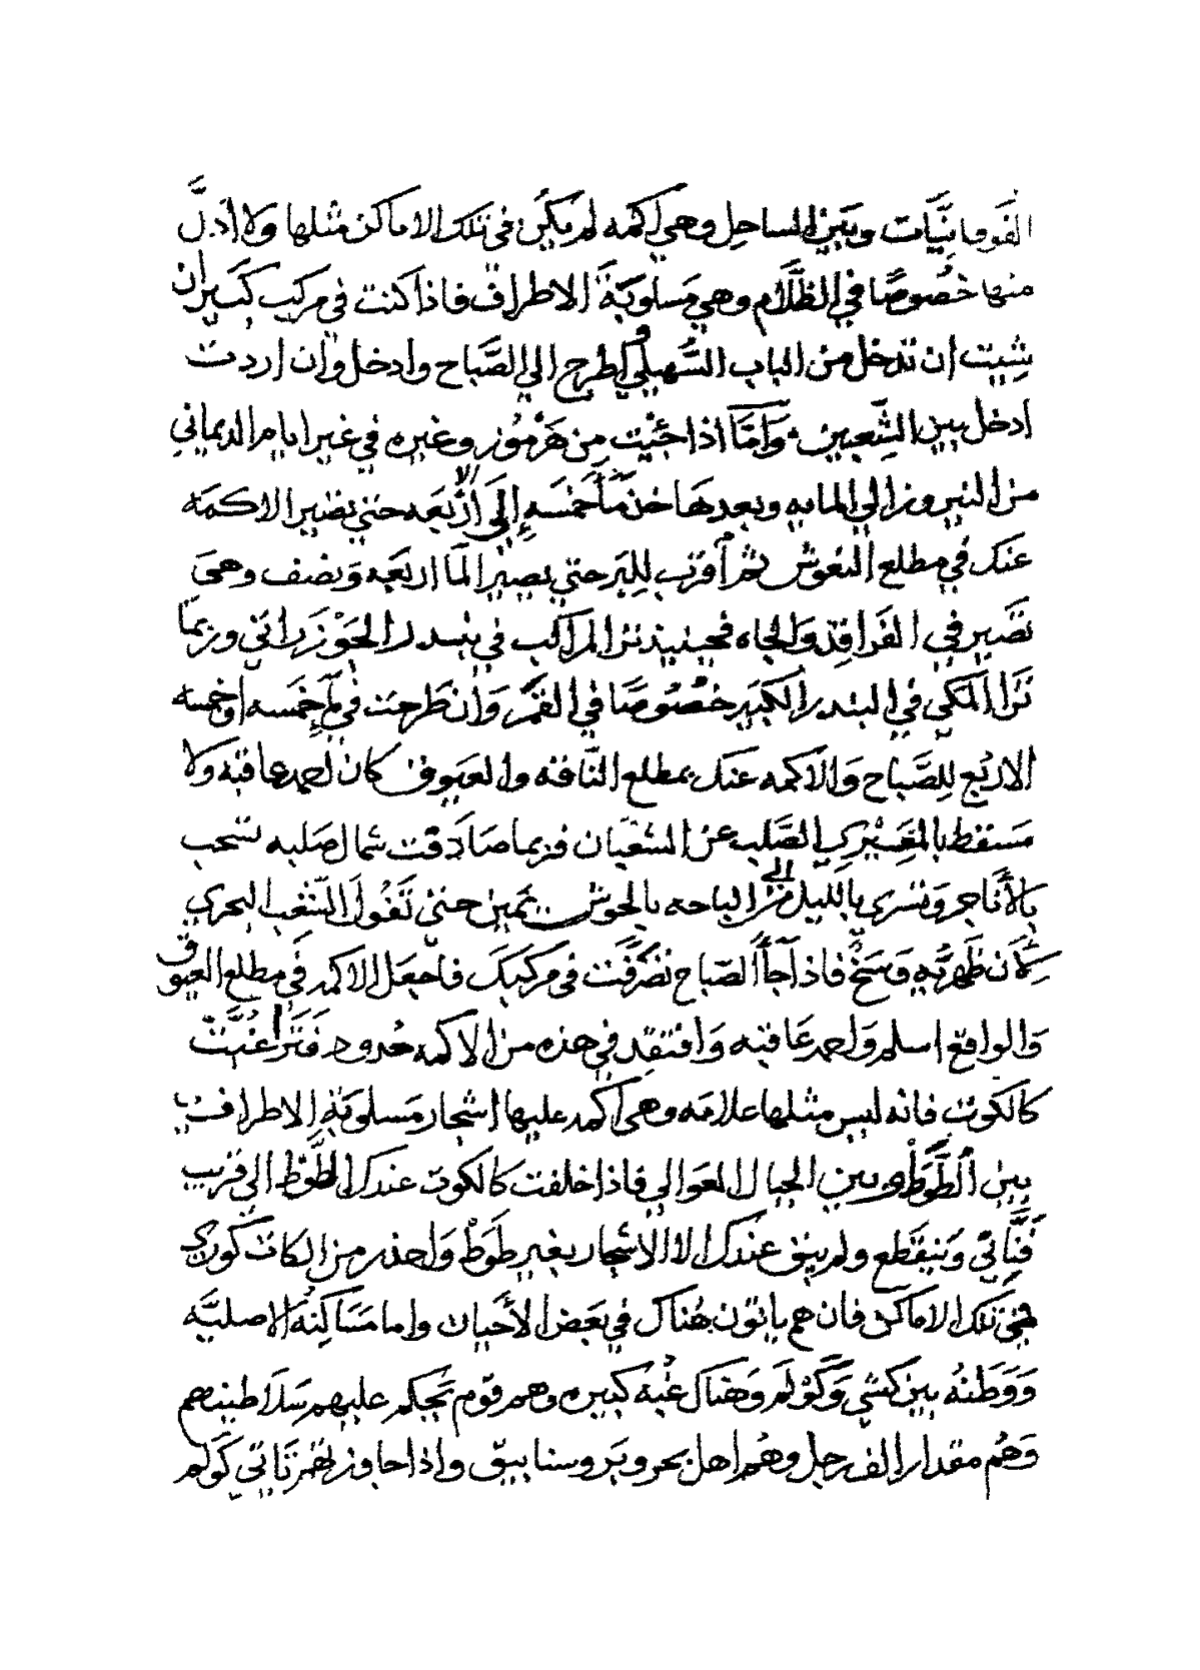 القومانيّات وبين الساحل وهي اكمه لم يكن في تلك الاماكن مثلها ولا ادلّ
منها خصوصًا في الظّلام وهي مسلوبة الاطراف فاذا كنت في مركب كبير ان
شيت ان تدخل من الباب السّهيلي اطرح الي الصّباح وادخل وان اردت
ادخل بين الشّعبين وامّا اذا جئت من هرموز وغيره في غير ايام الديماني
من النيروز الي المايه وبعدها خذ مأ خمسه إلى الاربعه حتي تصير الاكمه
عنك في مطلع النعوش ثم اقرب للبر حتي يصير الما اربعه ونصف وهي
تصير في الفراقد والجاه فحينيذ ترا المراكب في بندر الجوزراتي وربما
ترا المكي في البندر الكبير خصوصًا في القمر وان طرحت في خمسه او خمسه
الاربع للصّباح والاكمه عنك بمطلع النّاقه والعيوق كان احمد عاقبه ولا
مسقط بالمغ الصّلب عن الشعبان فربما صادفت شمال صلبه تسحب
بالأناجر وتسري بالليل من الي الباحه بالحوش يمين حتي تغول الشعب البحري
لان ظهريّه وسخ فاذا جأ الصّباح تصرّفت في مركبك فاجعل الاكمه في مطلع العيوق
والواقع اسلم واحمد عاقبه وافتقد في هذه من الاكمه حدود فتر اعبّت
كالكوت فانه ليس مثلها علامه وهي اكمه عليها اشجار مسلوبة الاطراف
بين الطّوط وبين الجبال العوالي فاذا خلفت كالكوت عندك الطّوط الي قريب
فنّاني وينقطع ولم يبق عندك الا الاشجار بغير طوط واحذر من الكات كوري
في تلك الاماكن فان هم ياتون هناك في بعض الأحيان واما مساكنه الاصليّه
ووطنه بين كشي وكولم وهناك غبه كبيره وهم قوم تحكم عليهم سلاطينهم
وهم مقدار الف رجل وهم اهل بحر وبر وسنابيق واذا جاوز تقرتاتي كولم